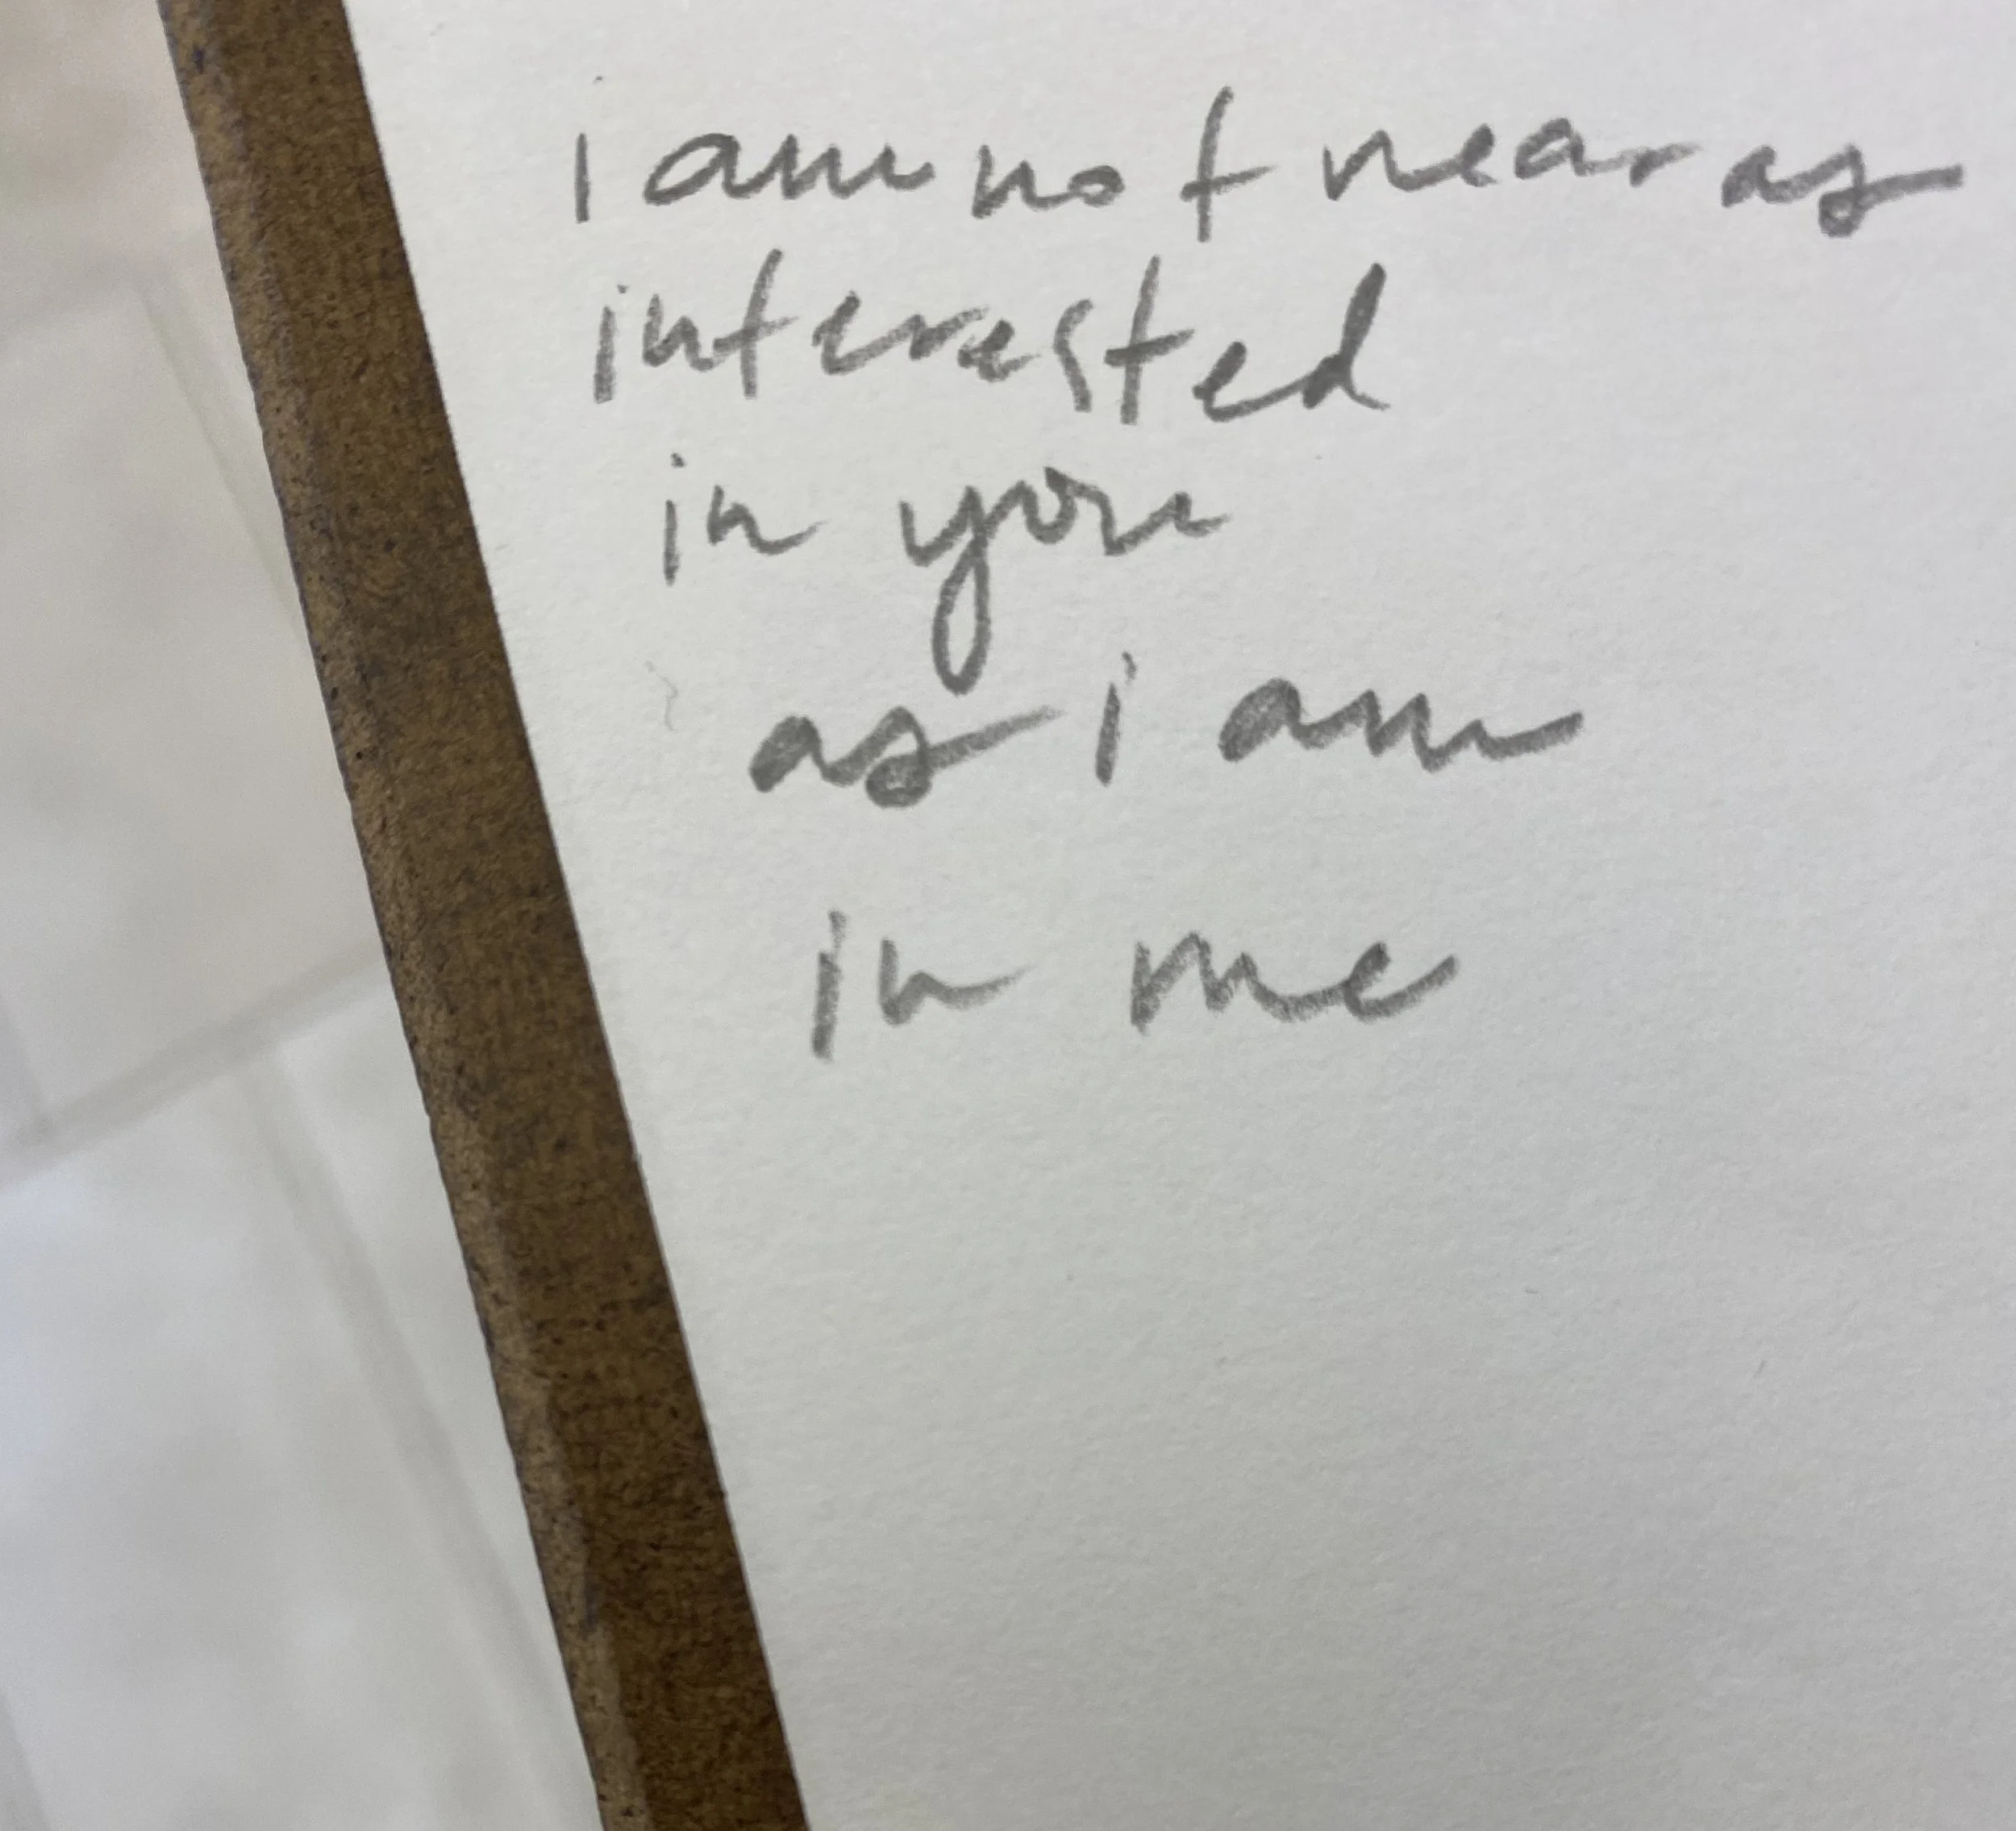 i am not near as
interested
in you
as i am
in me